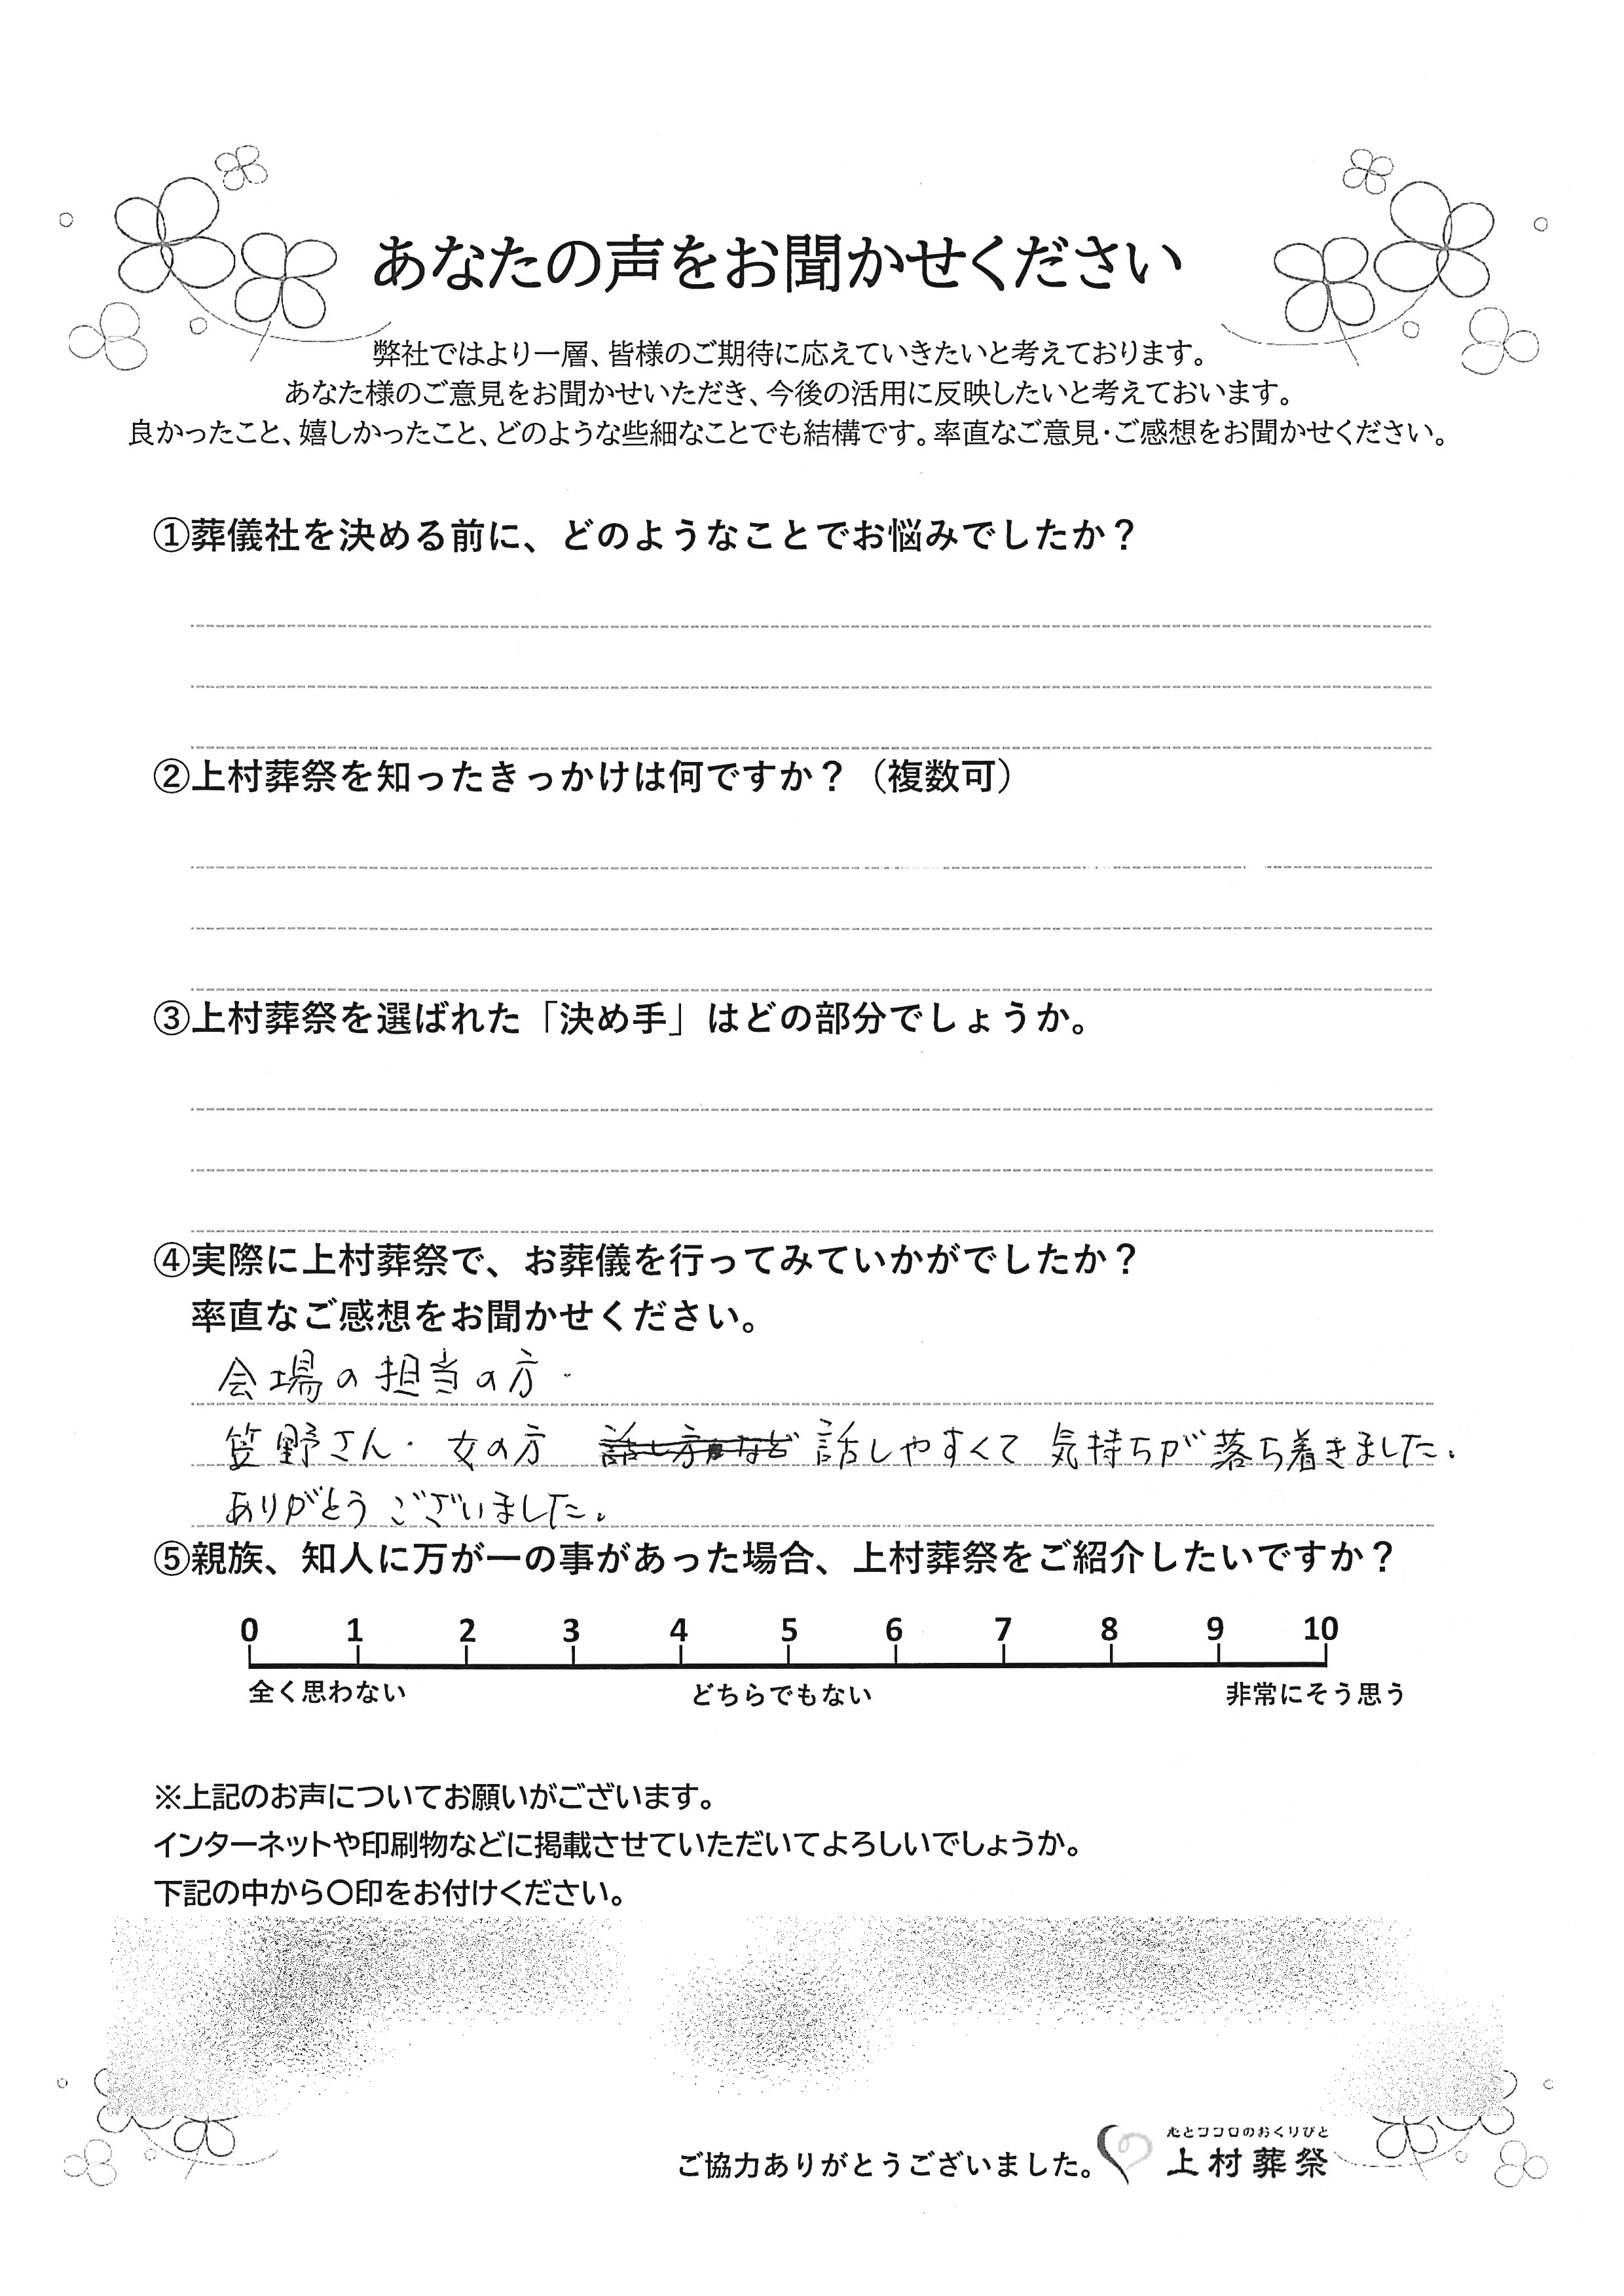 あなたの声をお聞かせください
弊社ではより一層、皆様のご期待に応えていきたいと考えております。
あなた様のご意見をお聞かせいただき、今後の活用に反映したいと考えておいます。
良かったこと、嬉しかったこと、どのような些細なことでも結構です。率直なご意見・ご感想をお聞かせください。
①葬儀社を決める前に、どのようなことでお悩みでしたか？
②上村葬祭を知ったきっかけは何ですか？（複数可）
③上村葬祭を選ばれた「決め手」はどの部分でしょうか。
④実際に上村葬祭で、お葬儀を行ってみていかがでしたか？
率直なご感想をお聞かせください。
会場の担当の方・
笠野さん・女の方 話しやすくて 気持ちが落ち着きました。
ありがとうございました。
⑤親族、知人に万が一の事があった場合、上村葬祭をご紹介したいですか？
0 1 2 3 4 5 6 7 8 9 10
全く思わない どちらでもない 非常にそう思う
※上記のお声についてお願いがございます。
インターネットや印刷物などに掲載させていただいてよろしいでしょうか。
下記の中から〇印をお付けください。
心とココロのおくりびと
ご協力ありがとうございました。 上村葬祭